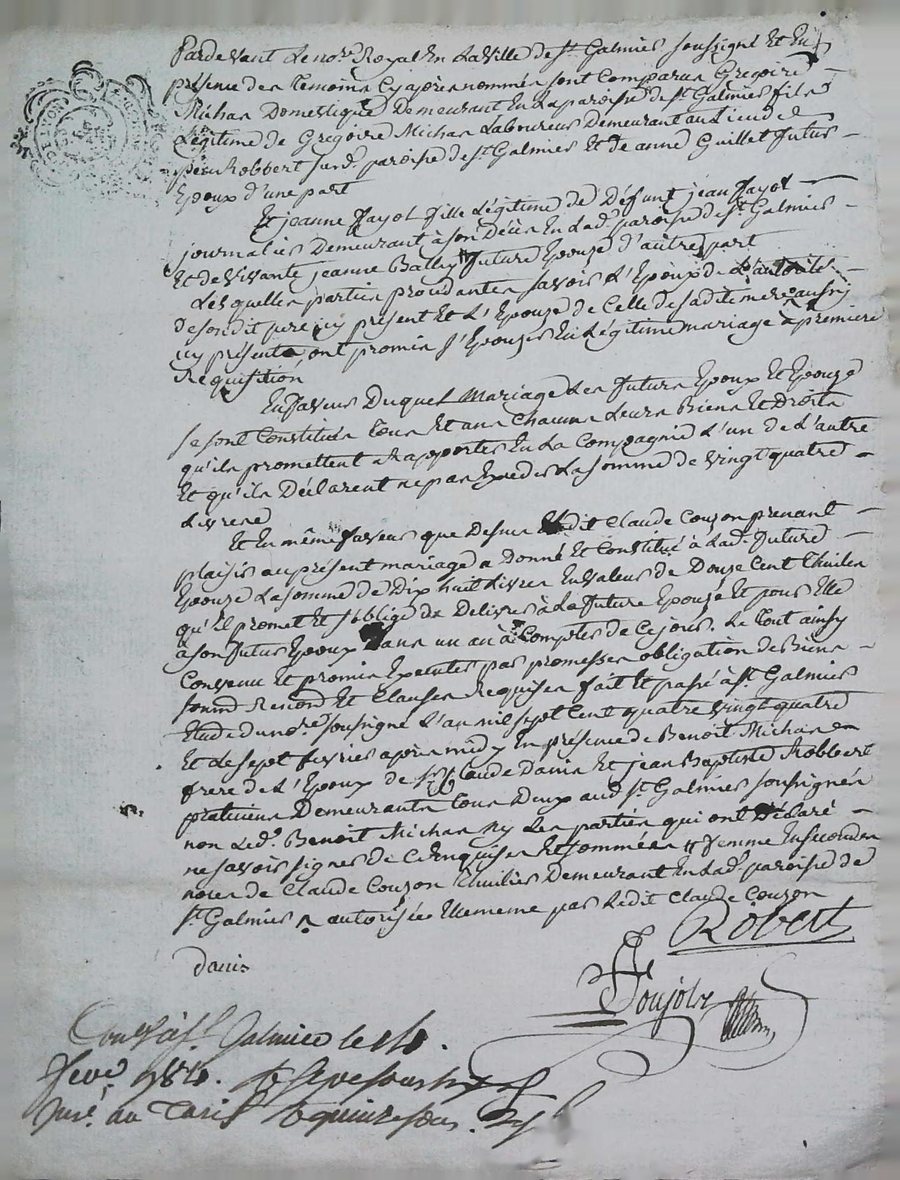 Pardevant Le nore Royal En La Ville de st Galmier soussigné Et En
présence des temoins Cy après nommés sont Comparus Gregoire
Michas Domestique Demeurant En La paroisse de st Galmier fils
Légitime de Gregoire Michas Laboureur Demeurant au Lieu de
Robbert surd. paroisse de st Galmier Et de anne Guillet futur
Epoux d'une part
Et jeanne fayol fille Légitime de Défunt jean fayol
journalier Demeurant à son Décès En Lad. paroisse de st Galmier
Et de Vivante jeanne Bally # future Epouze d'autre part
Lesquelles parties procedantes savoir L'Epoux de L'autorité
de son dit pere cy présent Et L'Epouze de Celle de sadite mere aussy
cy présente, ont promis s'Epouser En Légitime mariage à premiere
Réquisition
En faveur Duquel Mariage Les futurs Epoux Et Epouze
se sont Constitués tous Et uns Chacuns Leurs Biens Et Droits
qu'ils promettent Raporter En La Compagnie L'un de L'autre
Et qu'ils Déclarent ne pas Exceder La somme de vingt quatre
Livres
Et En même faveur que Dessus Ledit Claude Couzon prenant
plaisir au présent mariage a Donné Et Constitué à Lad. future
Epouze La somme de Dix huit Livres En valeur de Douze Cent thuiles
qu'il promet Et s'oblige de Délivrer à La future Epouze Et pour Elle
à son futur Epoux Dans un an à Compter de Ce jour. Le tout ainsy
Convenu Et promis Executer par promesses obligation de Biens
soumd Renond Et Clauses Requises fait Et passé à st Galmier
Etude du nore soussigné L'an mil sept Cent quatre vingt quatre
Et Le sept fevrier après midy En présence de Benoit Michas
frere de L'Epoux de Claude Danis Et jean Baptiste Robbert
praticien Demeurants tous Deux aud. st Galmier soussignés
non Led. Benoit Michas ny Les parties qui ont Déclaré
ne savoir signer de Ce Enquises Et sommées # femme En secondes
noces de Claude Couzon thuilier Demeurant En Lad. paroisse de
st Galmier autorisée Elle meme par Ledit Claude Couzon
Robert
danis
Poujolz
Galmier le 14.
fevr 1784.
au Tarif quinze sous